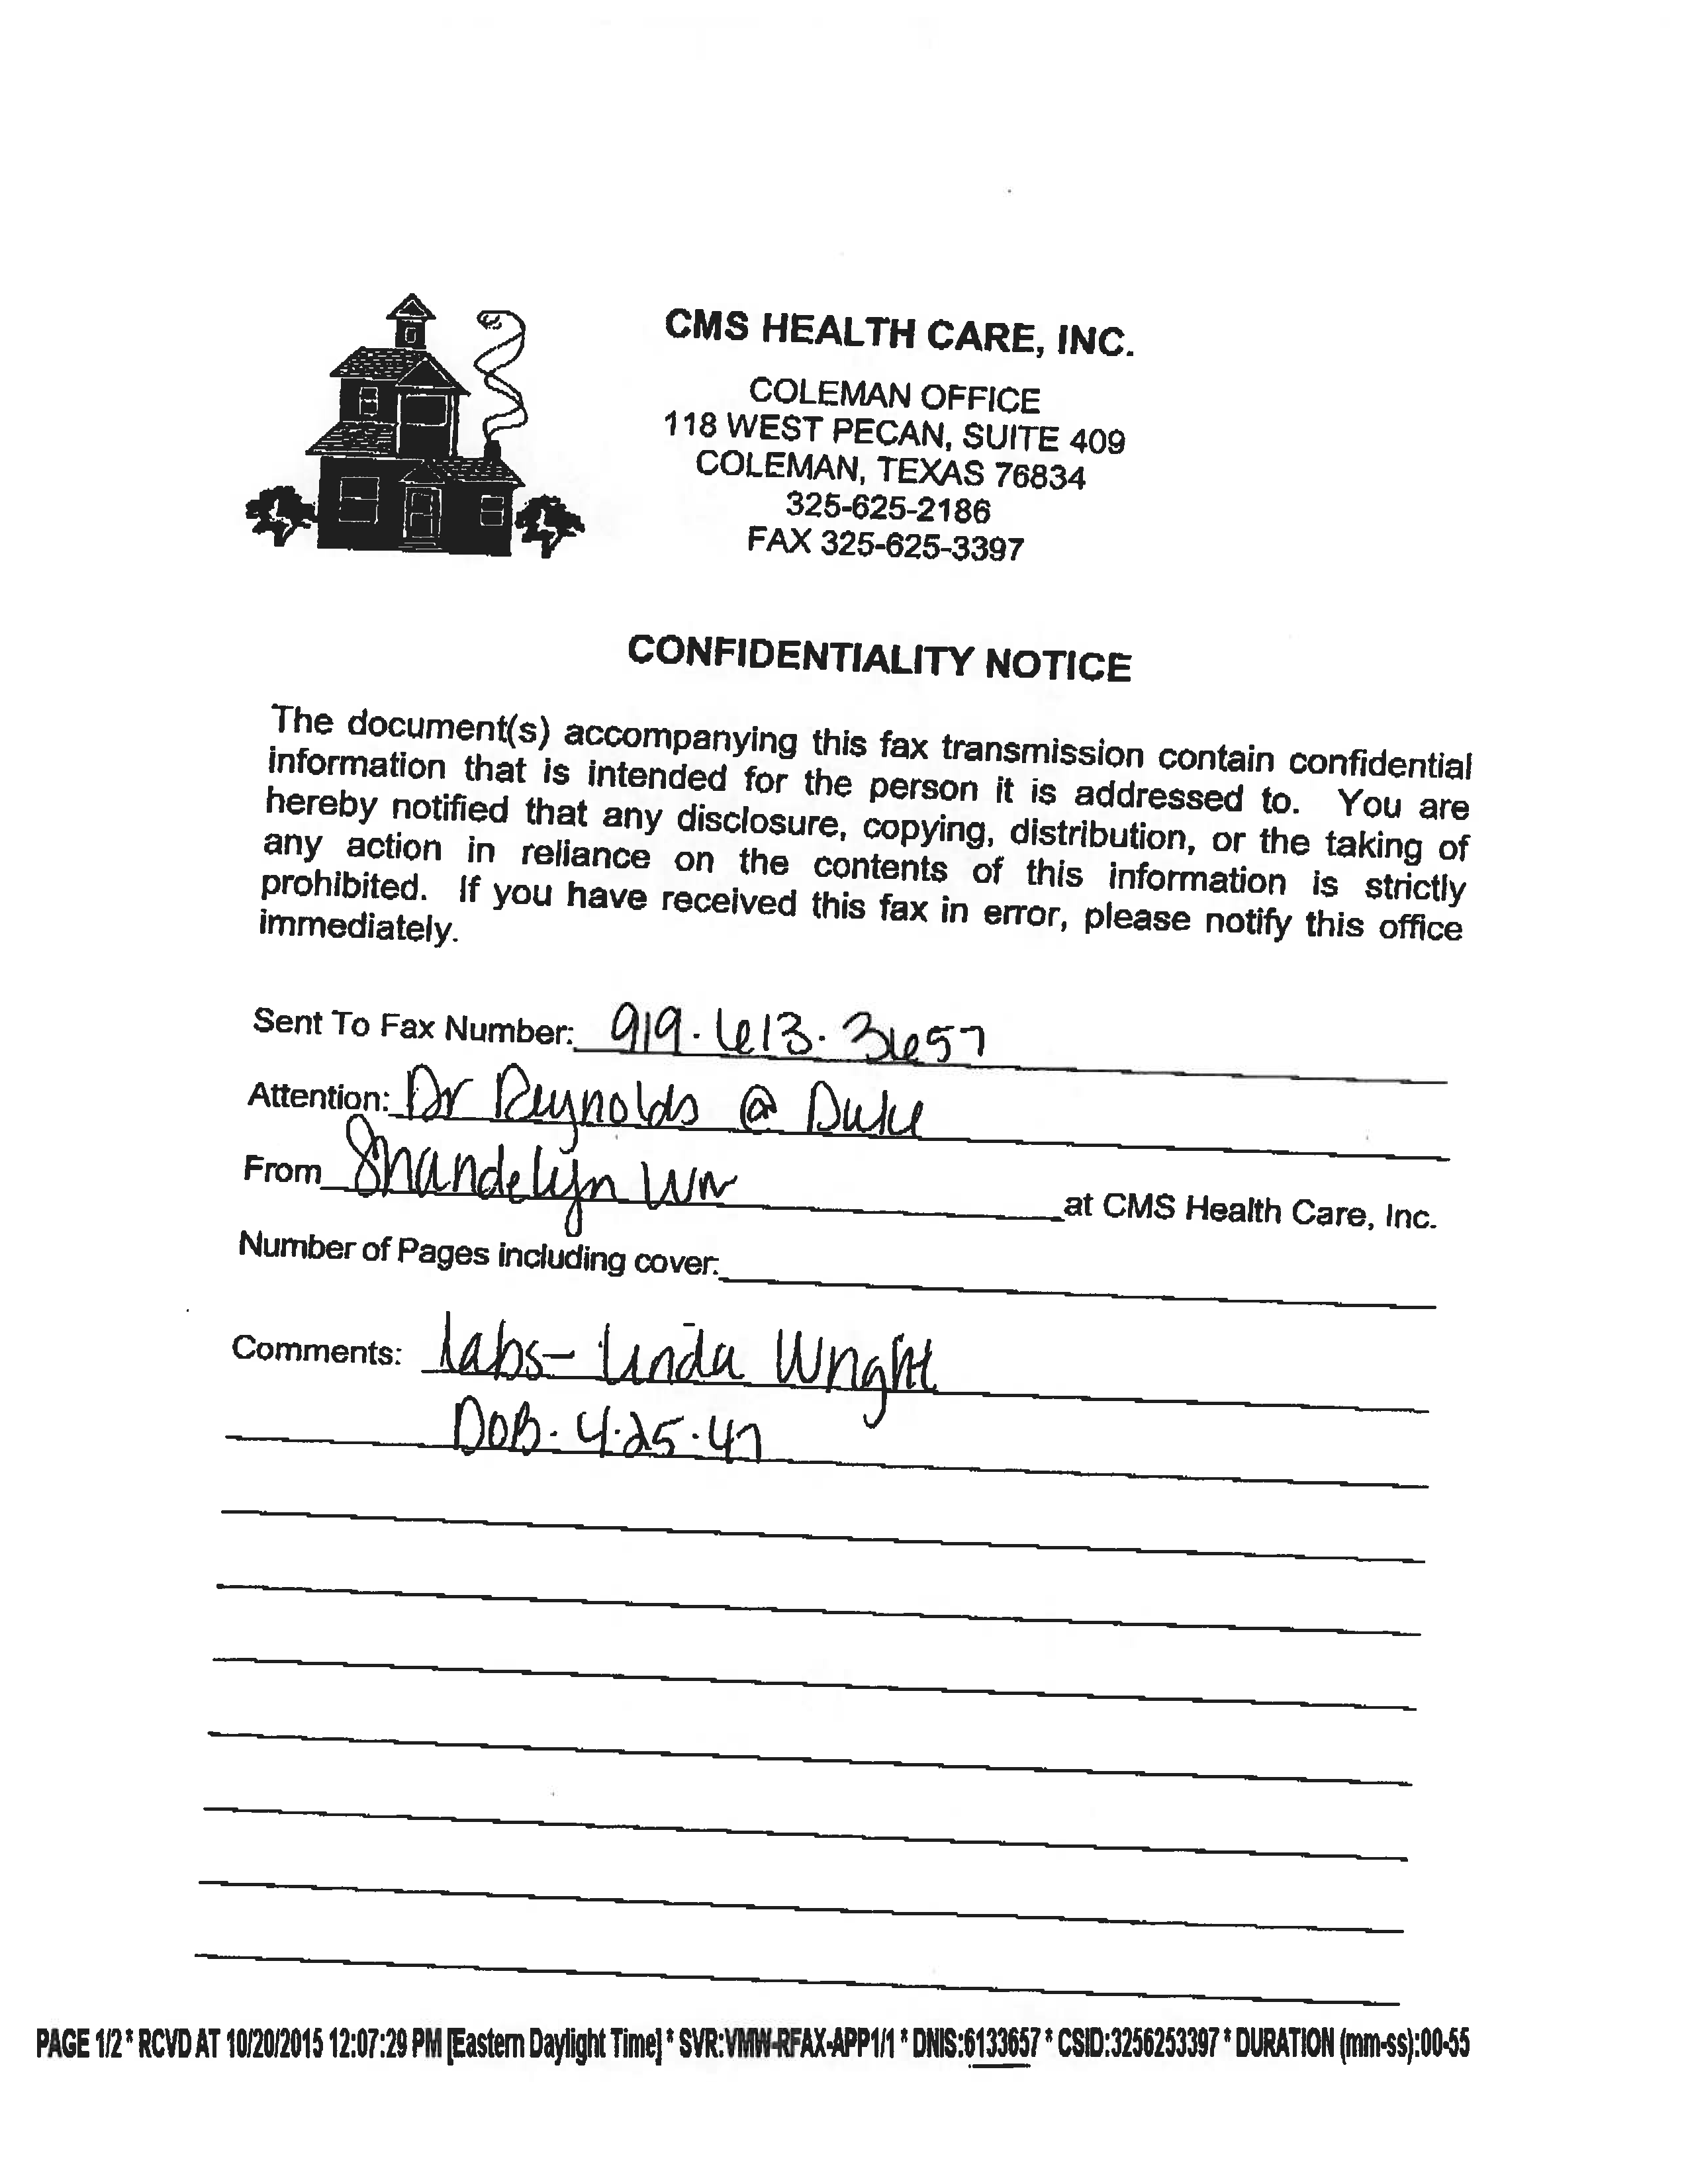 CMS HEALTH CARE, INC.
COLEMAN OFFICE
118 WEST PECAN, SUITE 409
COLEMAN, TEXAS 76834
325-625-2186
FAX 325-625-3397
CONFIDENTIALITY NOTICE
The document(s) accompanying this fax transmission contain confidential
information that is intended for the person it is addressed to. You are
hereby notified that any disclosure, copying, distribution, or the taking of
any action in reliance on the contents of this information is strictly
prohibited. If you have received this fax in error, please notify this office
immediately.
Sent To Fax Number: 919.613.3657
Attention: Dr Reynolds @ Duke
From Shandelyn at CMS Health Care, Inc.
Number of Pages including cover:
Comments: labs- Linda Wright
DOB. 4.25.47
PAGE 1/2 * RCVD AT 10/20/2015 12:07:29 PM [Eastern Daylight Time] * SVR:VMW-RFAX-APP1/1 * DNIS:6133657 * CSID:3256253397 * DURATION (mm-ss):00-55